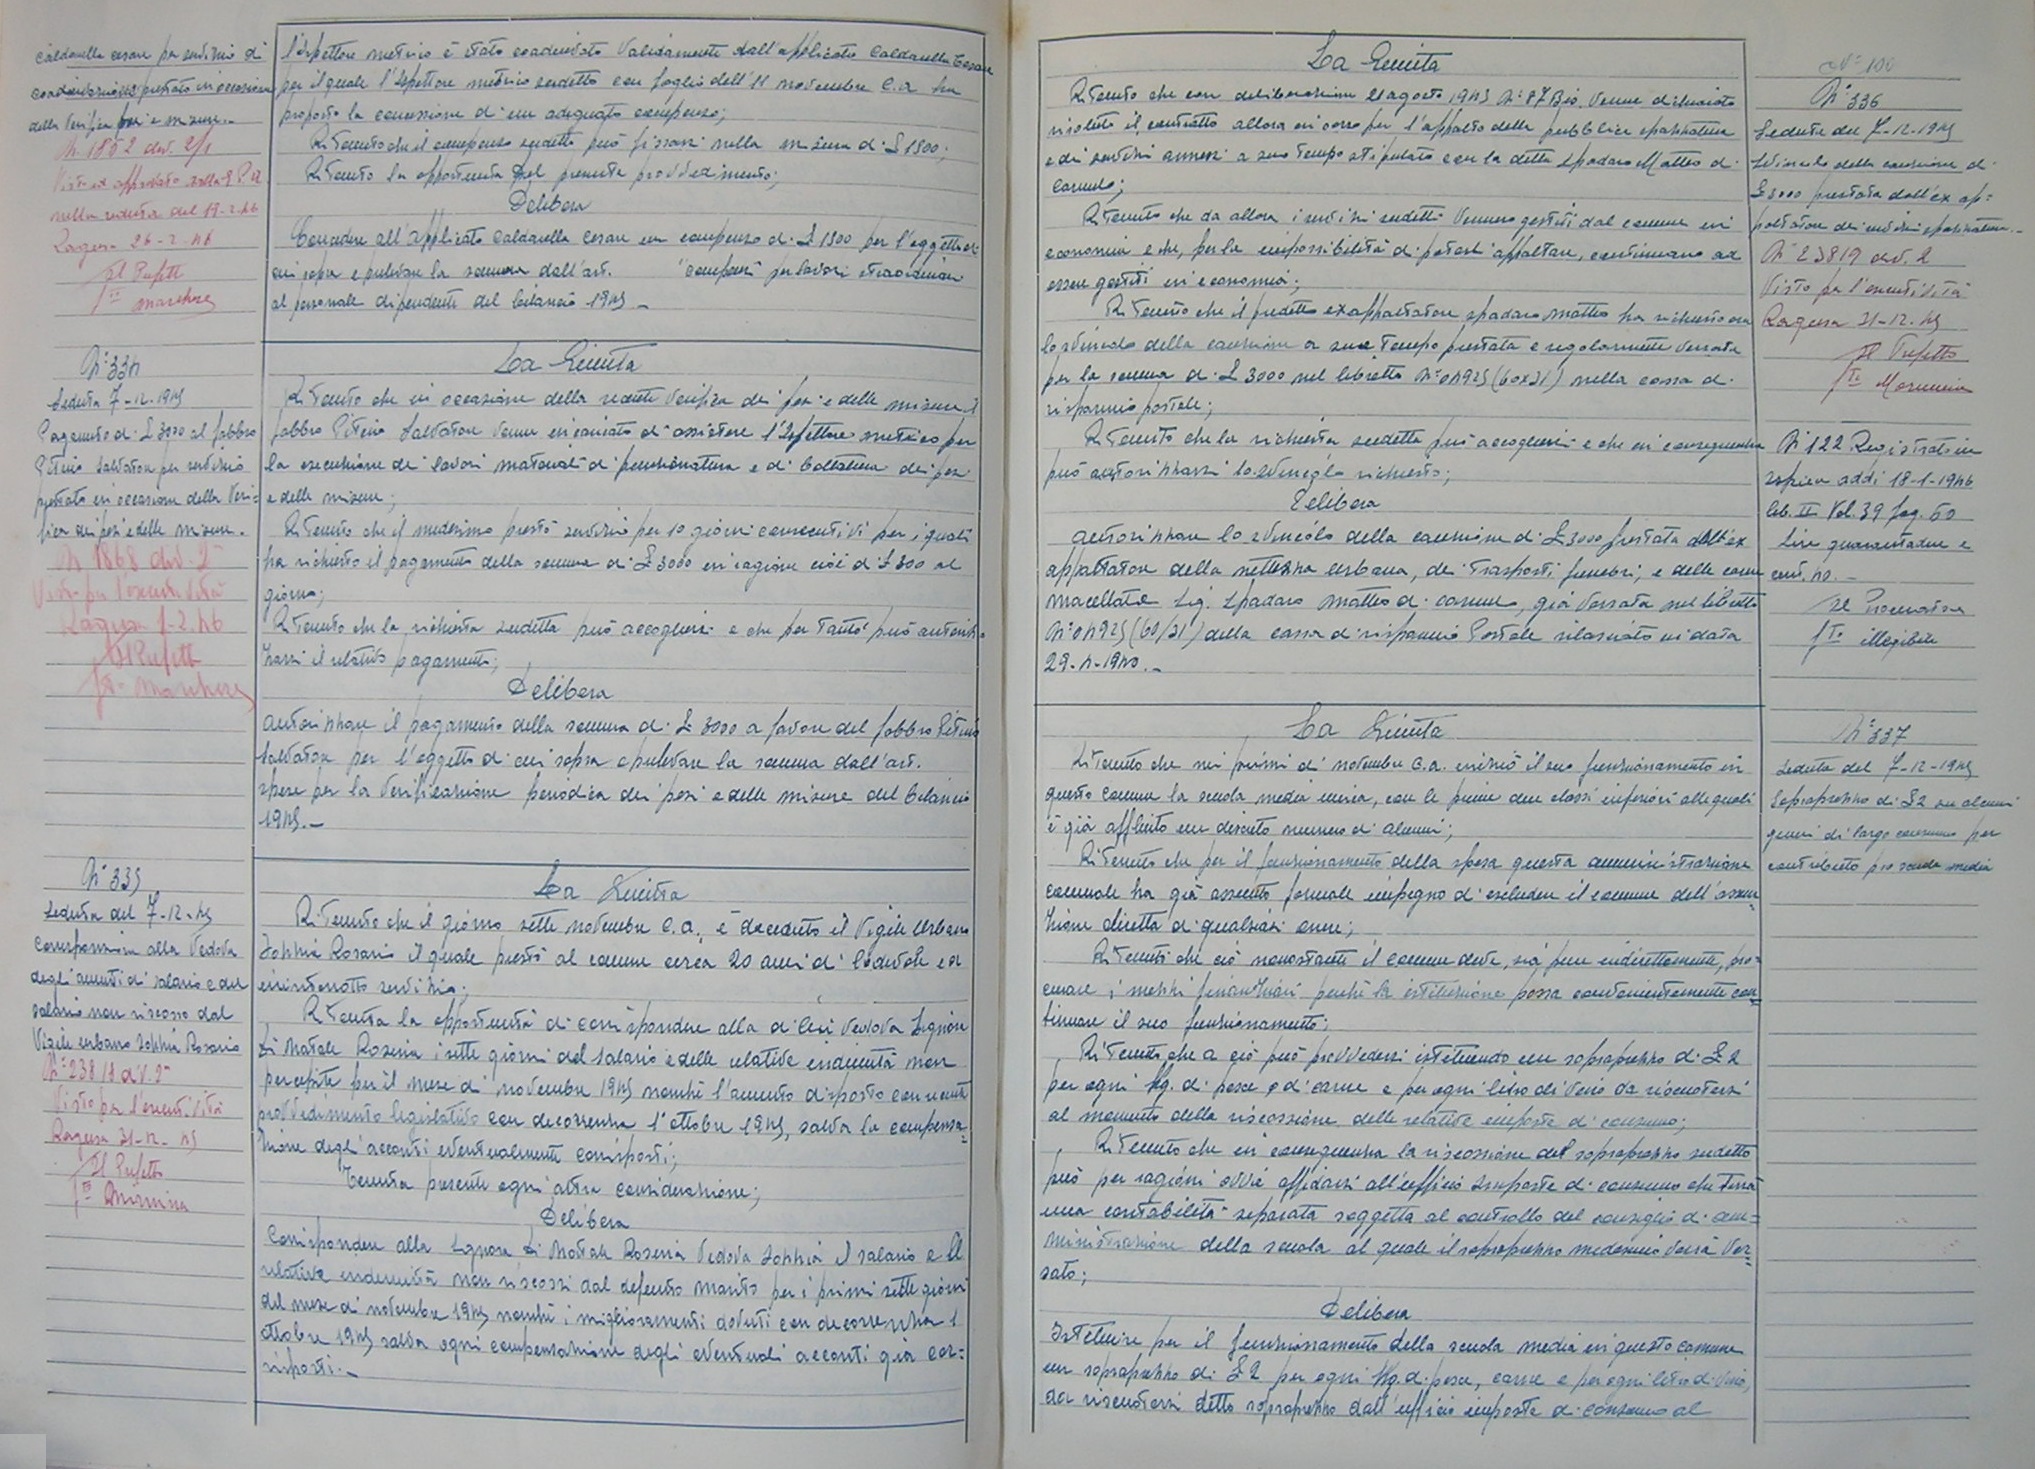 Caldarella Cesare per servizio di
coadiuvazione prestato in occasione
della Verifica pesi e misure.-
N. 1852 div. 2/1
Visto ed approvato dalla G.P.A.
nella seduta del 19-2-46
Ragusa 26-2-46
Il Prefetto
l'Ispettore metrico è stato coadiuvato validamente dall'applicato Caldarella Cesare
per il quale l'Ispettore metrico sudetto con foglio dell'11 novembre c.a. ha
proposto la concessione di un adeguato compenso;
Ritenuto che il compenso sudetto può fissarsi nella misura di £ 1800;
Ritenuta la opportunità del presente provvedimento;
Delibera
Concedere all'applicato Caldarella Cesare un compenso di £ 1800 per l'oggetto di
cui sopra e prelevare la somma dall'art. "compensi per lavori straordinari
al personale dipendente del bilancio 1945 -
N° 334
Seduta 7-12-1945
Pagamento di £ 3000 al fabbro
Pitino Salvatore per servizio
prestato in occasione della Veri=
fica dei pesi e delle misure.
N. 1868 div. 2ª
Visto per l'esecutività
Ragusa 1-2-46
Il Prefetto
La Giunta
Ritenuto che in occasione della recente verifica dei pesi e delle misure il
fabbro Pitino Salvatore venne incaricato di assistere l'Ispettore metrico per
la esecuzione dei lavori materiali di punzonatura e di bollatura dei pesi
e delle misure;
Ritenuto che il medesimo prestò servizio per 10 giorni consecutivi per i quali
ha richiesto il pagamento della somma di £ 3000 in ragione cioè di £ 300 al
giorno;
Ritenuto che la richiesta sudetta può accogliersi e che per tanto può autoriz=
zarsi il relativo pagamento;
Delibera
Autorizzare il pagamento della somma di £ 3000 a favore del fabbro Pitino
Salvatore per l'oggetto di cui sopra e prelevare la somma dall'art.
spese per la Verificazione periodica dei pesi e delle misure del bilancio
1945.-
N° 335
Seduta del 7-12-45
Corresponsione alla Vedova
degli aumenti di salario e del
salario non riscosso dal
Vigile urbano Iozzia Rosario
N° 23818 div. 2ª
Visto per l'esecutività
Ragusa 31-12-45
Il Prefetto
La Giunta
Ritenuto che il giorno sette novembre c.a. è deceduto il Vigile Urbano
Iozzia Rosario il quale prestò al comune circa 20 anni di lodevole ed
ininterrotto servizio;
Ritenuta la opportunità di corrispondere alla di lui vedova Signora
Di Natale Rosina i sette giorni del salario e delle relative indennità non
percepite per il mese di novembre 1945 nonchè l'aumento disposto con recente
provvedimento legislativo con decorrenza 1° ottobre 1945, salva la compensa=
zione degli acconti eventualmente corrisposti;
Tenuta presente ogni altra considerazione;
Delibera
Corrispondere alla Signora Di Natale Rosina Vedova Iozzia il salario e le
relative indennità non riscossi dal defunto marito per i primi sette giorni
del mese di novembre 1945 nonchè i miglioramenti dovuti con decorrenza 1
ottobre 1945 salva ogni compensazione degli eventuali acconti già cor=
risposti.-
La Giunta
Ritenuto che con deliberazione 21 agosto 1945 N° 87 Bis, venne dichiarato
risoluto il contratto allora in corso per l'appalto della pubblica spazzatura
e dei servizi annessi a suo tempo stipulato con la ditta Spadaro Matteo di
Carmelo;
Ritenuto che da allora i servizi sudetti vennero gestiti dal comune in
economia e che, per la impossibilità di poterli appaltare, continuano ad
essere gestiti in economia;
Ritenuto che il predetto ex appaltatore Spadaro Matteo ha richiesto ora
lo svincolo della cauzione a suo tempo prestata e regolarmente versata
per la somma di £ 3000 nel libretto N° 04925 (60×31) nella cassa di
risparmio postale;
Ritenuto che la richiesta sudetta può accogliersi e che in conseguenza
può autorizzarsi lo svincolo richiesto;
Delibera
Autorizzare lo svincolo della cauzione di £ 3000 prestata dall'ex
appaltatore della nettezza urbana, dei trasporti funebri, e delle carni
macellate Sig. Spadaro Matteo di Carmelo, già versata nel libretto
N° 04925 (60/31) della cassa di risparmio Postale rilasciato in data
29-4-1940.-
N° 100
N° 336
Seduta del 7-12-1945
Svincolo della cauzione di
£ 3000 prestata dall'ex ap=
paltatore dei servizi spazzatura.-
N° 23819 div. 2
Visto per l'esecutività
Ragusa 31-12-45
Il Prefetto
N° 122 Registrato in
addì 18-1-1946
Lib. II Vol. 39 fog. 60
Lire quarantadue e
cent. 40.-
Il Procuratore
fto illegibile
La Giunta
Ritenuto che nei primi di novembre c.a. iniziò il suo funzionamento in
questo comune la scuola media unica, con le prime due classi inferiori alle quali
è già affluito un discreto numero di alunni;
Ritenuto che per il funzionamento della spesa questa amministrazione
comunale ha già assunto formale impegno di escludere il comune dall'assun=
zione diretta di qualsiasi onere;
Ritenuto che ciò nonostante il comune deve, sia pure indirettamente, pro=
curare i mezzi finanziari perchè la istituzione possa convenientemente con=
tinuare il suo funzionamento;
Ritenuto che a ciò può provvedersi istituendo un soprapprezzo di £ 2
per ogni Kg. di pesce e di carne e per ogni litro di vino da riscuotersi
al momento della riscossione delle relative imposte di consumo;
Ritenuto che in conseguenza la riscossione del soprapprezzo sudetto
può per ragioni ovvie affidarsi all'ufficio Imposte di consumo che terrà
una contabilità separata soggetta al controllo del consiglio di am=
ministrazione della scuola al quale il soprapprezzo medesimo verrà ver=
sato;
Delibera
Istituire per il funzionamento della scuola media in questo comune
un soprapprezzo di £ 2 per ogni Kg. di pesce, carne e per ogni litro di vino,
da riscuotersi detto soprapprezzo dall'ufficio imposte di consumo al
N° 337
Seduta del 7-12-1945
Soprapprezzo di £ 2 su alcuni
generi di largo consumo per
contributo pro scuola media